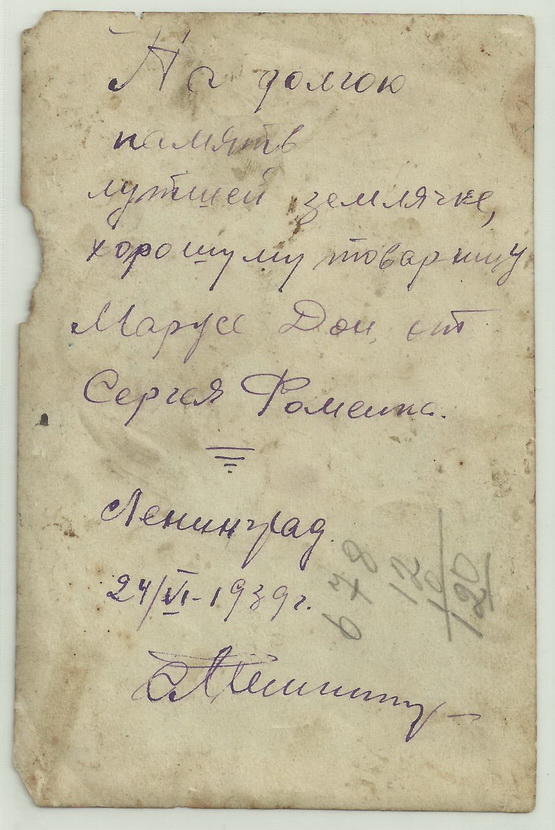 На долгою
память
лутшей землячке,
хорошому товарищу
Марусе Дон. от
Сергея Фоменко.
Ленинград.
24/VI-1939г.
678
12
10
120